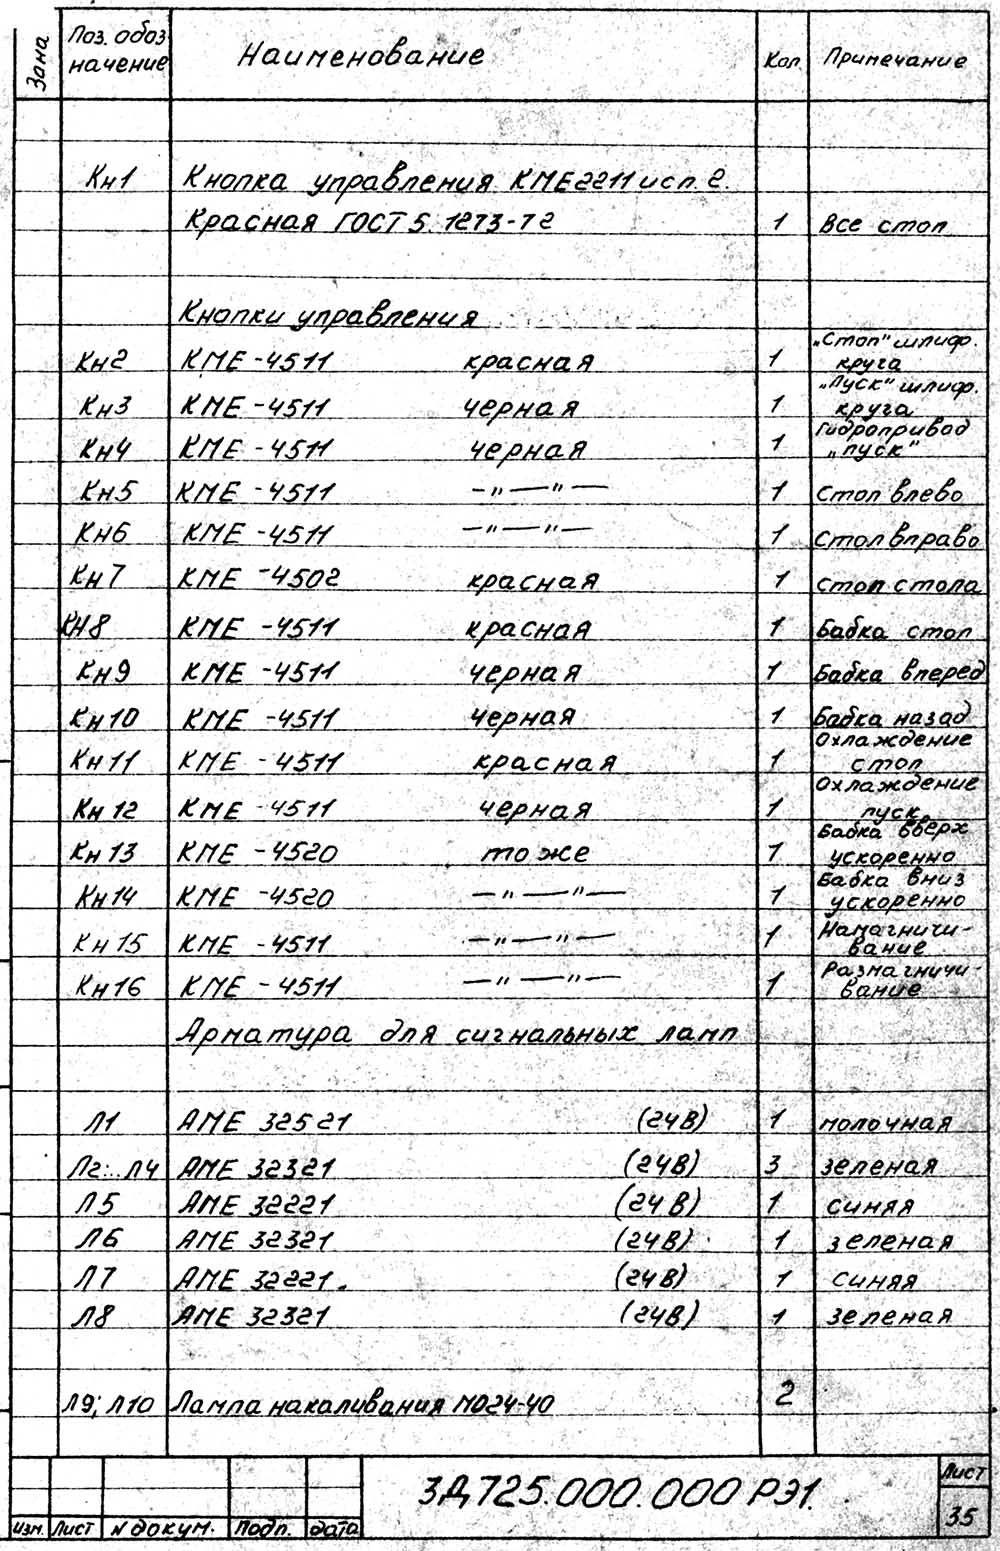 Зона
Поз. обоз-
начение
Наименование
Кол.
Примечание
Кн1 Кнопка управления КМЕ2211 исп. 2.
Красная ГОСТ 5.1273-72 1 Все стоп
Кнопки управления
Кн2 КМЕ-4511 красная 1 „Стоп" шлиф. круга
Кн3 КМЕ-4511 черная 1 „Пуск" шлиф. круга
Кн4 КМЕ-4511 черная 1 Гидропривод „пуск"
Кн5 КМЕ-4511 —"—"— 1 Стол влево
Кн6 КМЕ-4511 —"—"— 1 Стол вправо
Кн7 КМЕ-4502 красная 1 Стоп стола
Кн8 КМЕ-4511 красная 1 Бабка стоп
Кн9 КМЕ-4511 черная 1 Бабка вперед
Кн10 КМЕ-4511 черная 1 Бабка назад
Кн11 КМЕ-4511 красная 1 Охлаждение стоп
Кн12 КМЕ-4511 черная 1 Охлаждение пуск
Кн13 КМЕ-4520 тоже 1 Бабка вверх ускоренно
Кн14 КМЕ-4520 —"—"— 1 Бабка вниз ускоренно
Кн15 КМЕ-4511 —"—"— 1 Намагничи-
вание
Кн16 КМЕ-4511 —"—"— 1 Размагничи-
вание
Арматура для сигнальных ламп
Л1 АМЕ 32521 (24В) 1 молочная
Л2...Л4 АМЕ 32321 (24В) 3 зеленая
Л5 АМЕ 32221 (24В) 1 синяя
Л6 АМЕ 32321 (24В) 1 зеленая
Л7 АМЕ 32221. (24В) 1 синяя
Л8 АМЕ 32321 (24В) 1 зеленая
Л9; Л10 Лампа накаливания МО24-40 2
3Д725.000.000 РЭ1.
Лист
35
Изм. Лист № докум. Подп. Дата